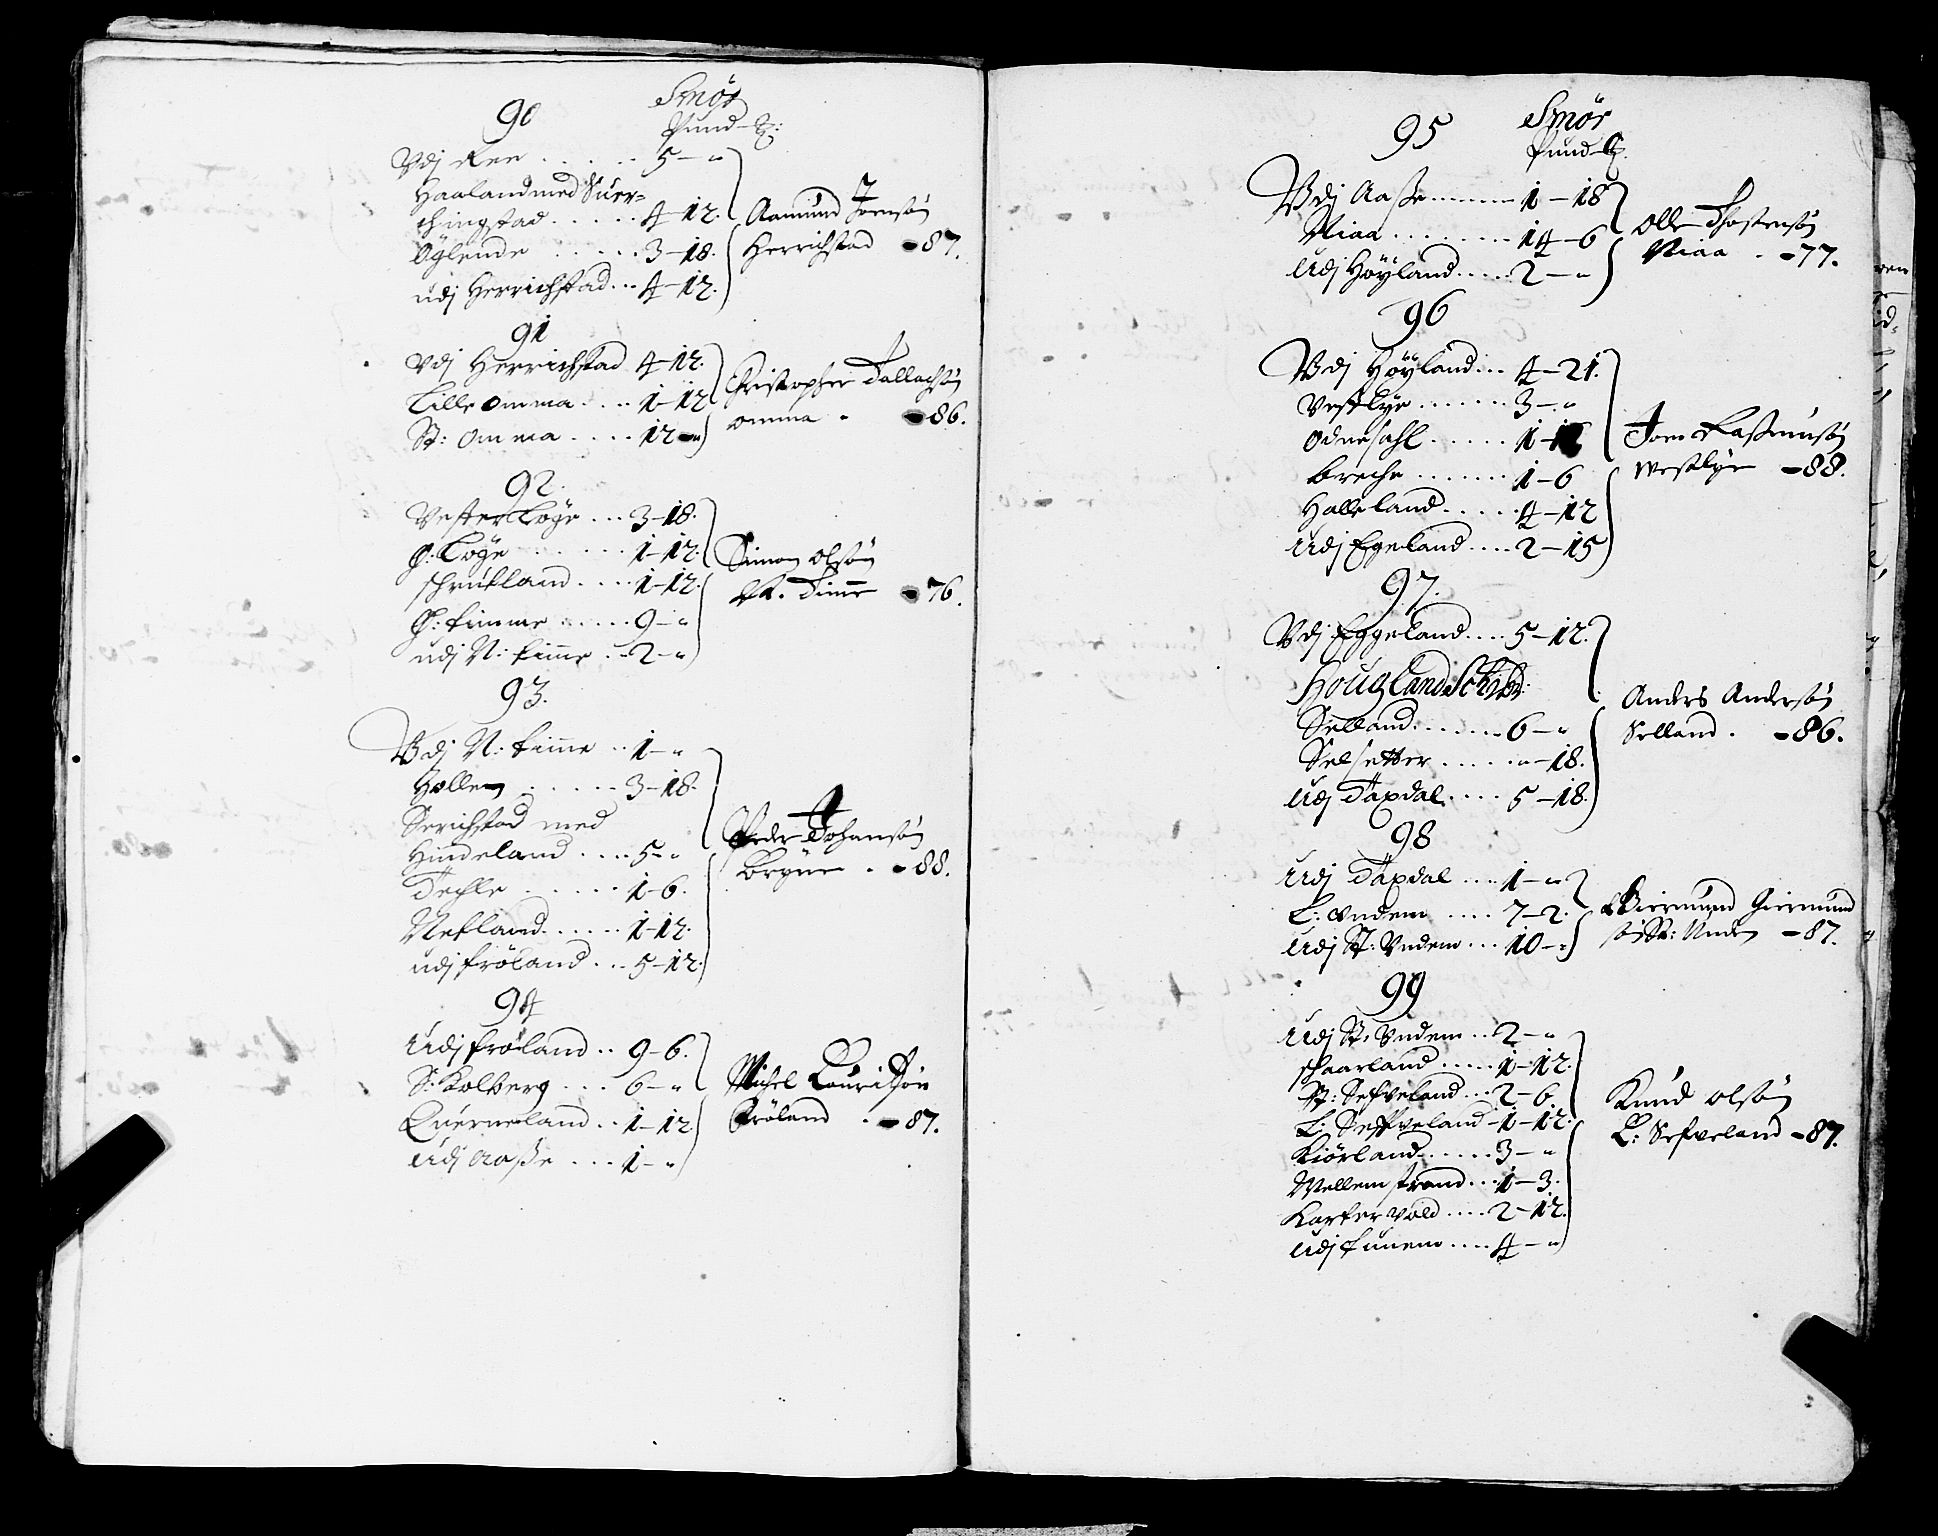 90 Smör
Pund – ℔:
Vdj Ree . . . . . 5 – "
Haaland med Suer=
chingstad . . . . . 4 – 12.
Öglende . . . . . 3 – 18.
udj Herrichstad . . 4 – 12.
Aamund Joensøn
Herrichstad – 87.
91
Vdj Herrichstad 4 – 12.
Lille omma . . . 1 – 12
St: omma . . . . 12 – "
Christopher Tallachsøn
omma . – 86.
92.
Vester Løge . . . 3 – 18.
Ø: Løge . . . . . 1 – 12.
schrutland . . . . 1 – 12.
Ø: timme . . . . . 9 – "
udj N: time . . 2 – "
Simon olsøn
N. Time – 76.
93.
Vdj N: time . . 1 – "
Hollen . . . . . 3 – 18.
Serichstad med
Hindeland . . . . 5 – "
Techle . . . . . 1 – 6.
Netland . . . . . 1 – 12.
udj fröland . . . 5 – 12.
Peder Johansøn
Bryne . – 88.
94
Udj fröland . . 9 – 6.
S: Kolberg . . . 6 – "
Querneland . . 1 – 12
Udj Aaße . . . 1 – "
Michel Lauritsøn
Fröland . – 87.
95 Smör
Pund – ℔.
Vdj Aaße . . . . . 1 – 18
Niaa . . . . . . . 14 – 6
Udj Höyland . . . . 2 – "
Olle Thostensøn
Niaa . – 77.
96
Vdj Höyland . . . 4 – 21.
Vestlye . . . . . . . 3 – "
Odnesahl . . . . . 1 –
breche . . . . . . . 1 – 6
Halleland . . . . . 4 – 12
Udj Egeland . . . . 2 – 15
Joen Raßmusøn
westlye – 88.
97.
Vdj Eggeland . . . . 5 – 12.
Hougland
Selland . . . . . . 6 – "
Selsetter . . . . . " – 18.
Udj Taxdal . . . . 5 – 18.
Anders Andersøn
Selland . – 86.
98
Udj Taxdal . . . 1 – "
L: Vndem . . . . 7 – 2.
Udj St: Vndem . . . 10 – "
Giermund Giermund
søn St: Unden – 87.
99
Udj St: Vndem . . 2 – "
schaarland . . . . . 1 – 12.
St: Sefveland . . . 2 – 6.
L: Seffveland – 1 – 12.
Kiörland . . . . . . 3 – "
Mellem strand . . . 1 – 3.
Kartervold . . . . 2 – 12.
Udj tunem . . . . 4 – "
Knud olsøn
L: Sefveland – 87.